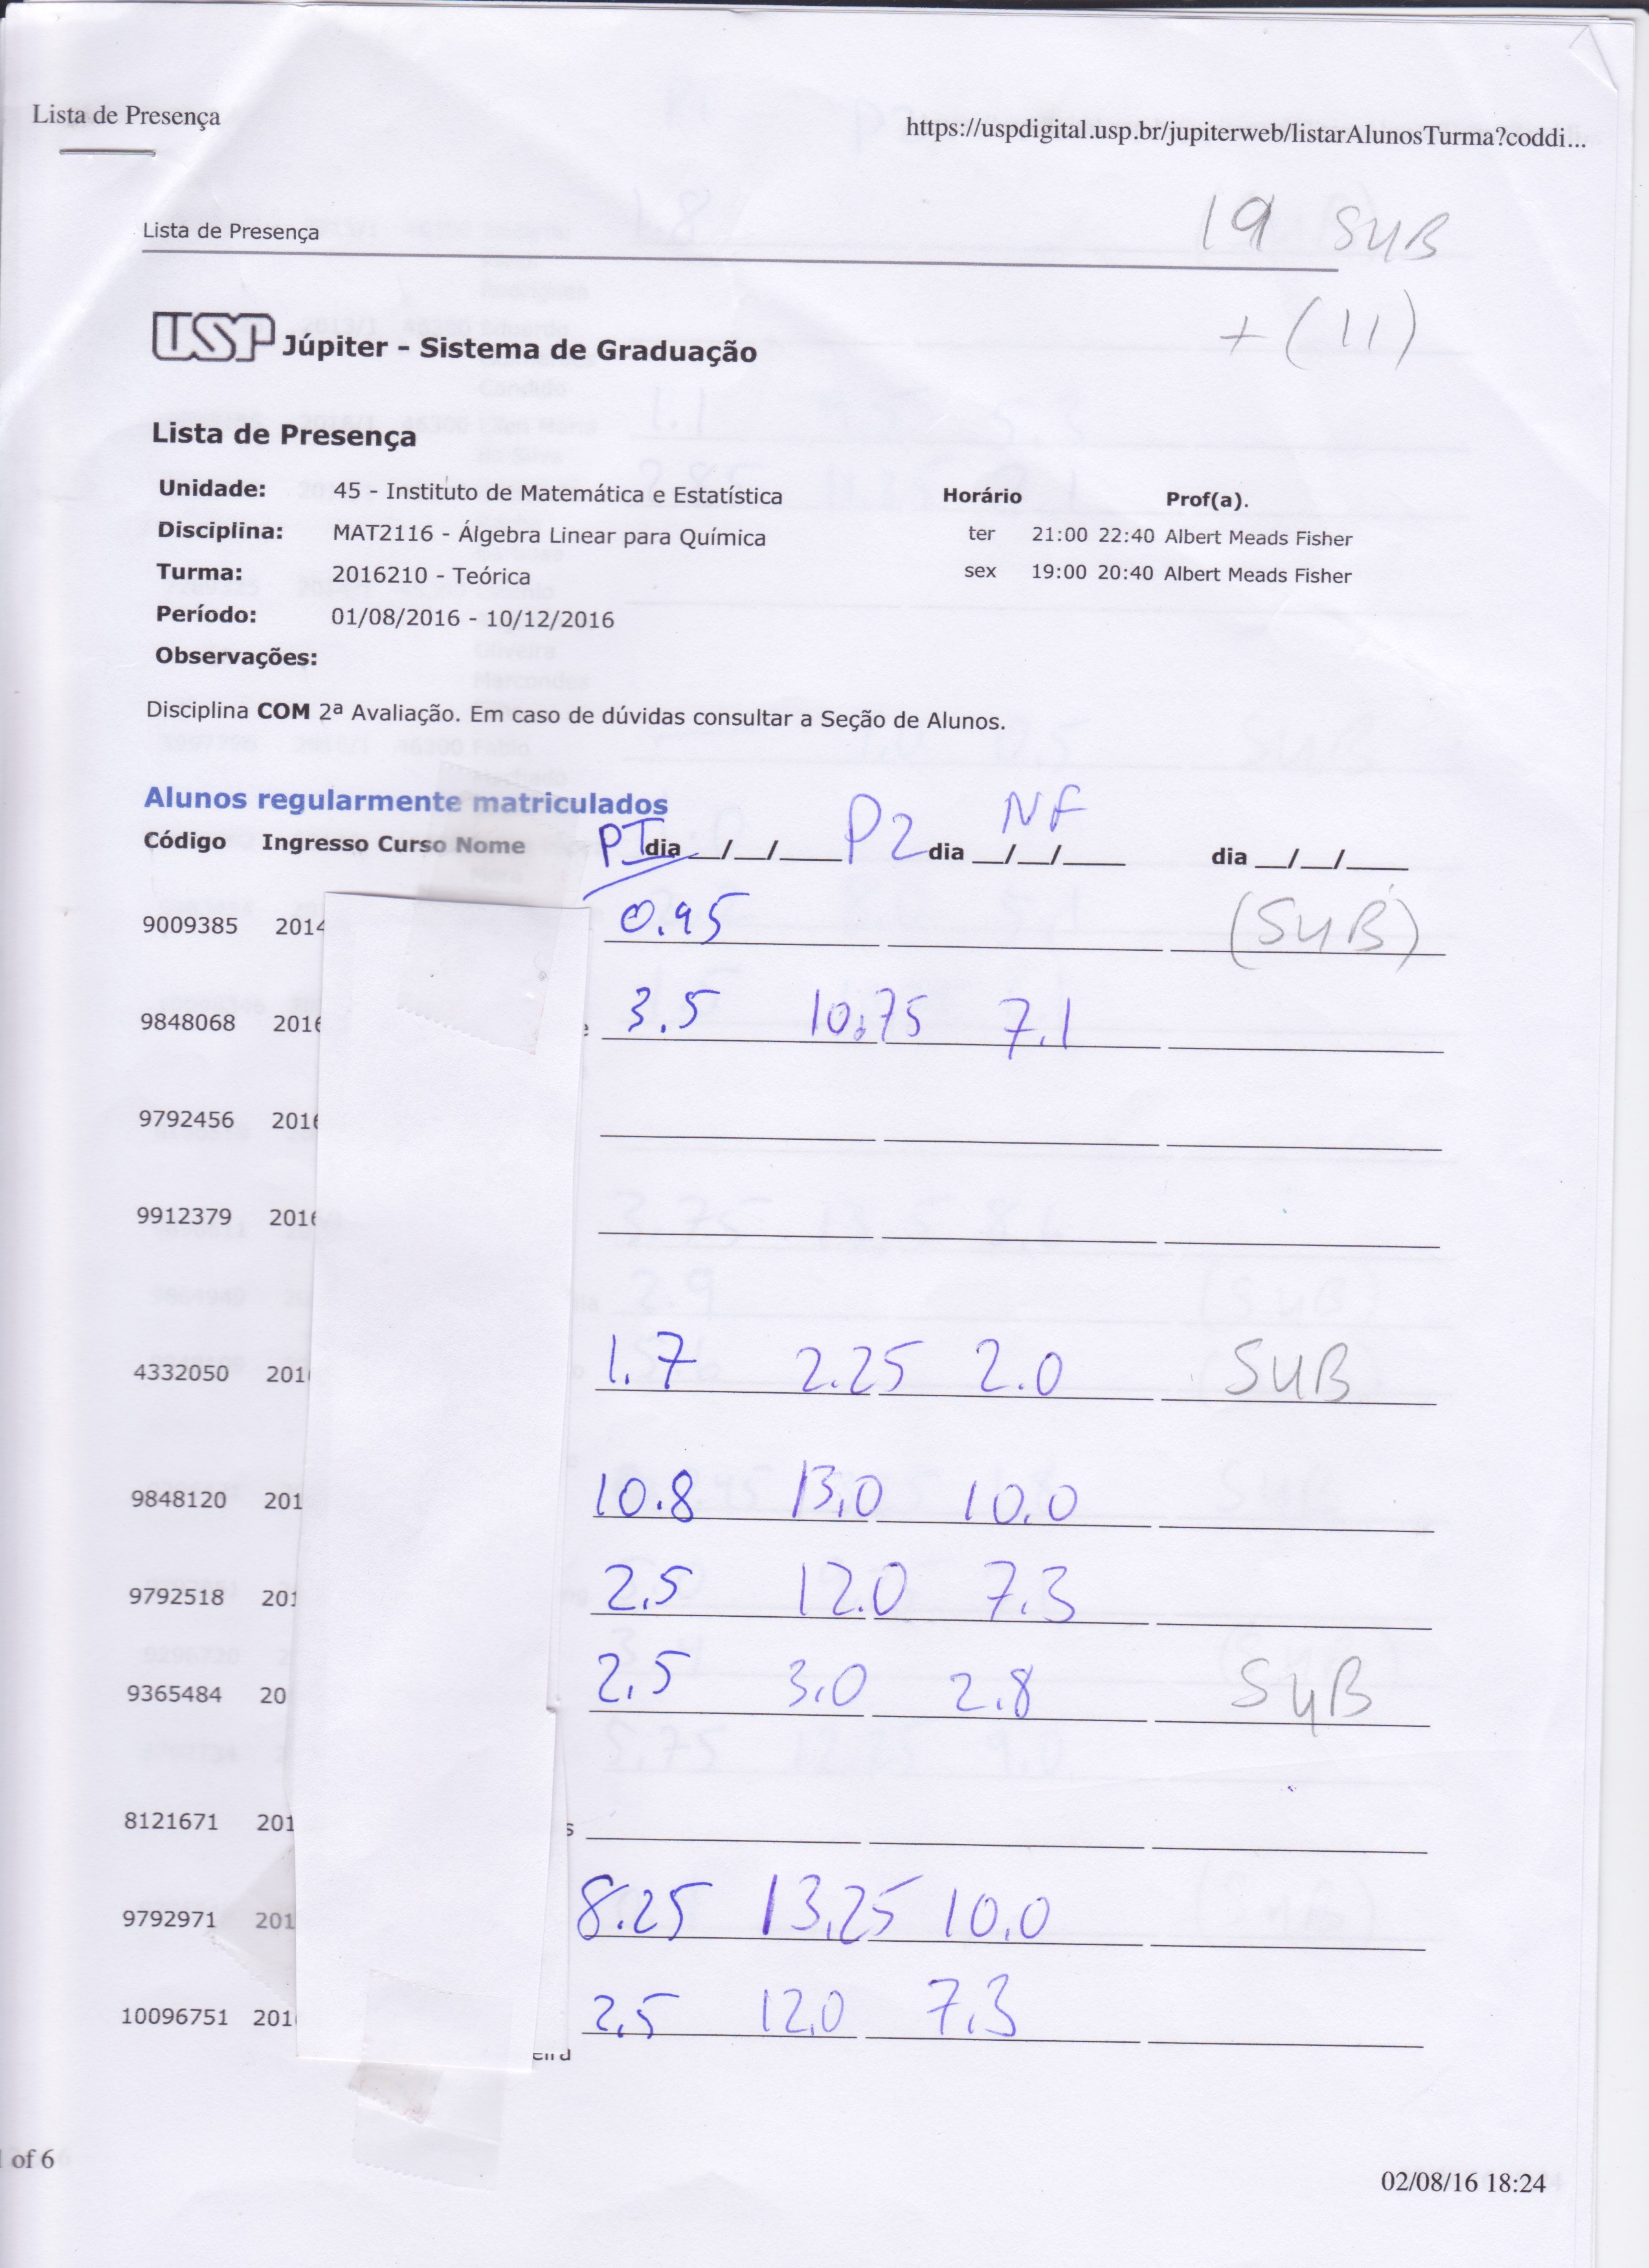 Lista de Presença https://uspdigital.usp.br/jupiterweb/listarAlunosTurma?coddi...
Lista de Presença 19 SUB
+ (11)
USP Júpiter - Sistema de Graduação
Lista de Presença
Unidade: 45 - Instituto de Matemática e Estatística Horário Prof(a).
Disciplina: MAT2116 - Álgebra Linear para Química ter 21:00 22:40 Albert Meads Fisher
Turma: 2016210 - Teórica sex 19:00 20:40 Albert Meads Fisher
Período: 01/08/2016 - 10/12/2016
Observações:
Disciplina COM 2ª Avaliação. Em caso de dúvidas consultar a Seção de Alunos.
Alunos regularmente matriculados NF
Código Ingresso Curso Nome PI dia __/__/____ P2 dia __/__/____ dia __/__/____
9009385 2014 0.95 (SUB)
9848068 2016 3.5 10.75 7.1
9792456 2016
9912379 2016
4332050 201 1.7 2.25 2.0 SUB
9848120 201 10.8 13.0 10.0
9792518 201 2.5 12.0 7.3
9365484 20 2.5 3.0 2.8 SUB
8121671 201 s
9792971 201 8.25 13.25 10.0
10096751 201 2.5 12.0 7.3
eira
of 6
02/08/16 18:24